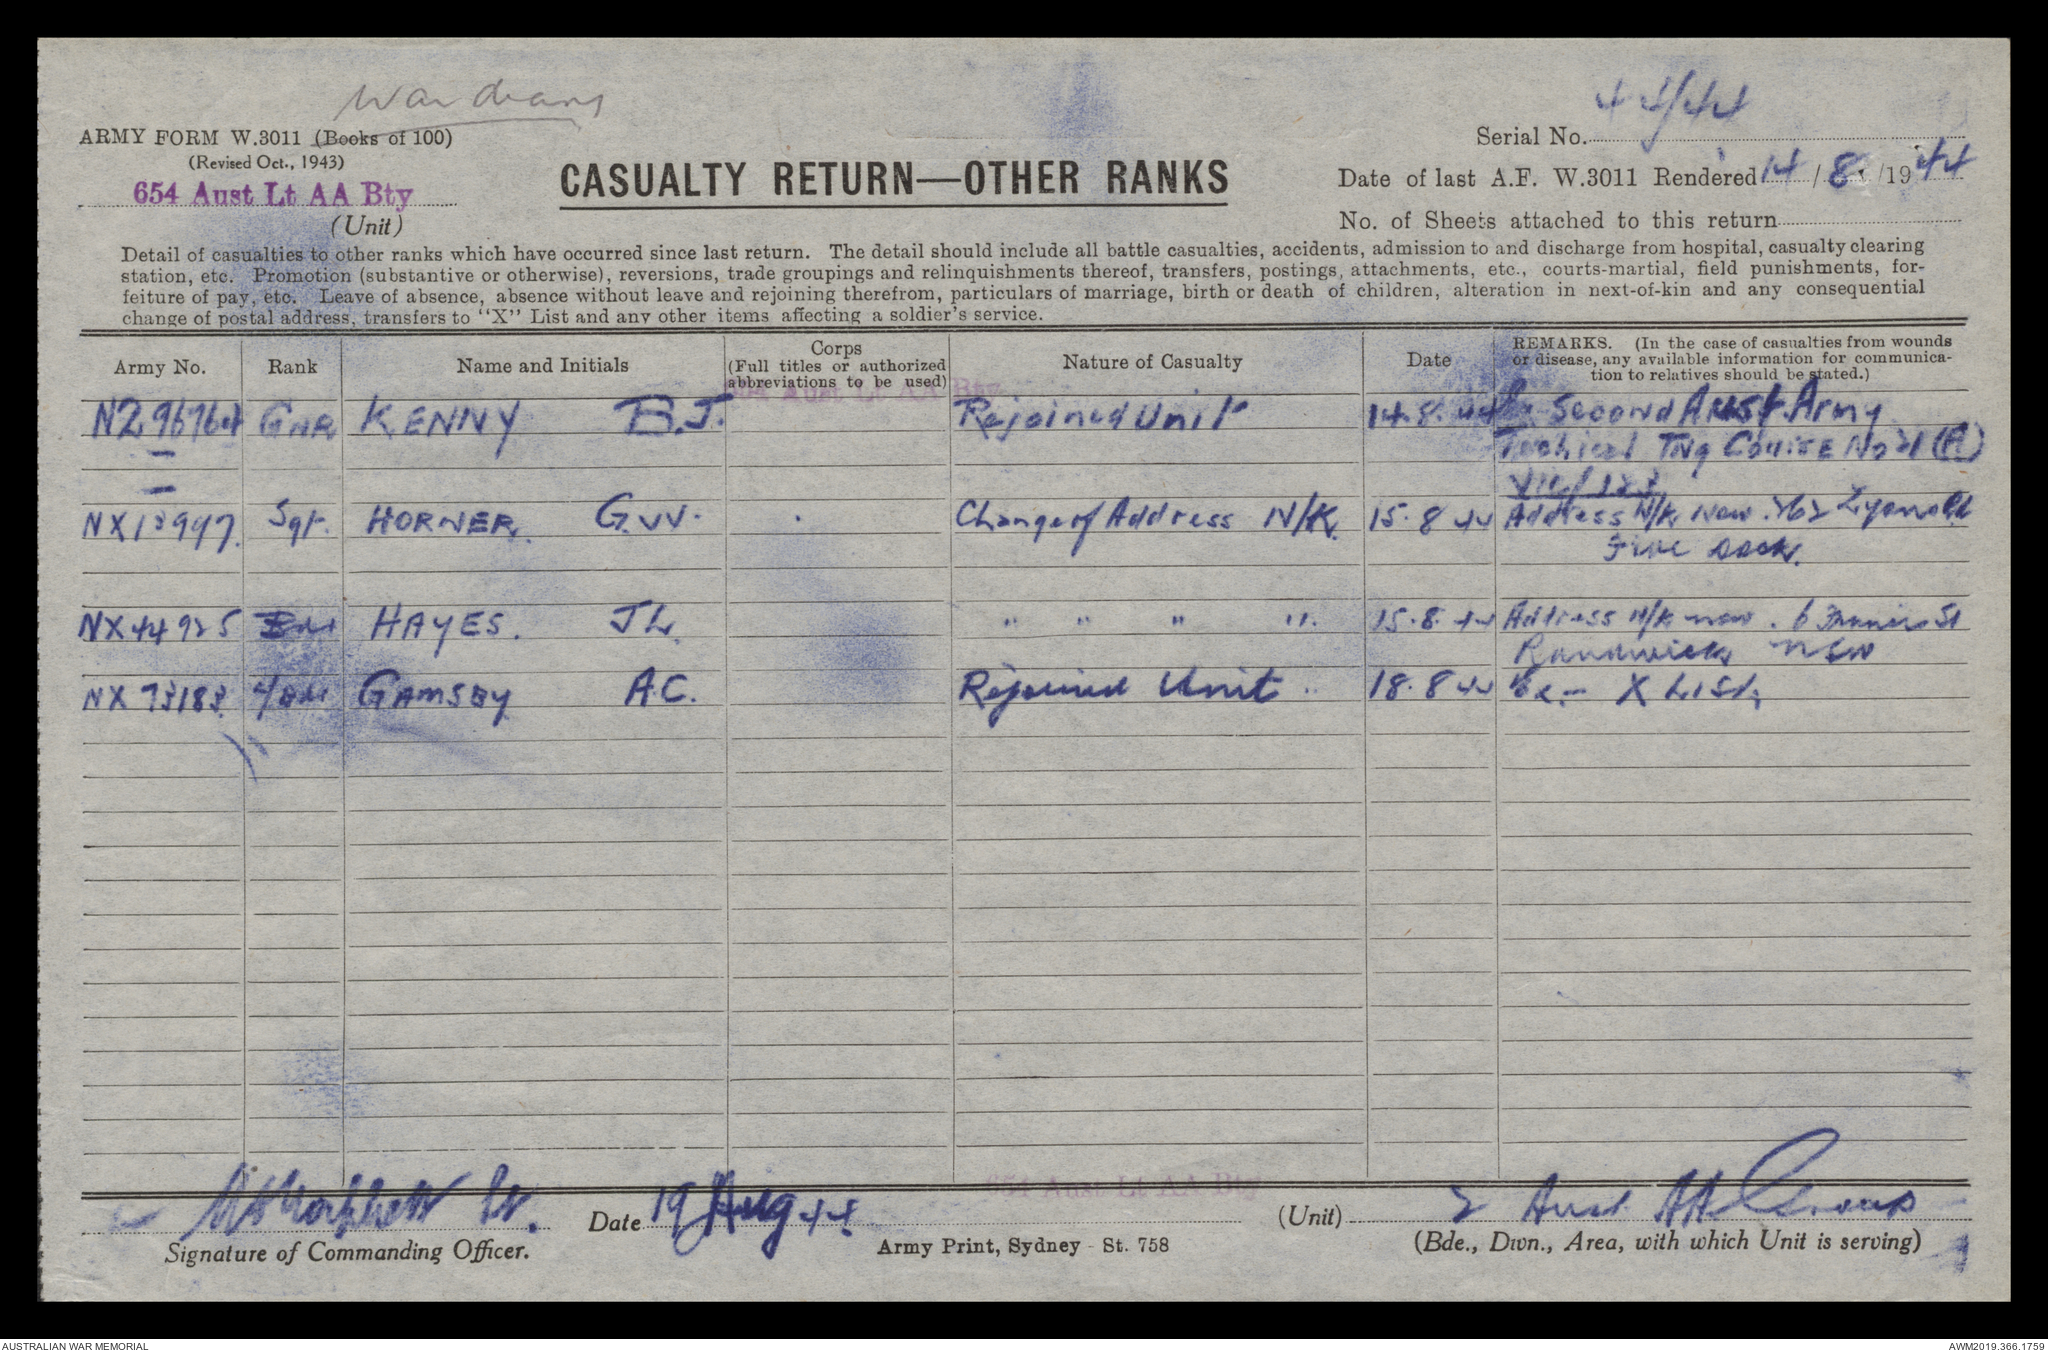 War diary
ARMY FORM W.3011 (Books of 100)
(Revised Oct., 1943)
654 Aust Lt AA Bty
(Unit)
CASUALTY RETURN—OTHER RANKS
Serial No. 44/44
Date of last A.F. W.3011 Rendered 14/8/1944
No. of Sheets attached to this return
Detail of casualties to other ranks which have occurred since last return. The detail should include all battle casualties, accidents, admission to and discharge from hospital, casualty clearing
station, etc. Promotion (substantive or otherwise), reversions, trade groupings and relinquishments thereof, transfers, postings, attachments, etc., courts-martial, field punishments, for-
feiture of pay, etc. Leave of absence, absence without leave and rejoining therefrom, particulars of marriage, birth or death of children, alteration in next-of-kin and any consequential
change of postal address, transfers to "X" List and any other items affecting a soldier's service.
Army No. Rank Name and Initials Corps (Full titles or authorized abbreviations to be used) Nature of Casualty Date REMARKS. (In the case of casualties from wounds or disease, any available information for communica-tion to relatives should be stated.)
654 Aust Lt AA Bty
Gnr KENNY B.J. Rejoined Unit 14.8.44 Second Aust Army
Technical Tng Course No 21 (A)
Sgt. HORNER. G.W. Change of Address N/K. 15.8.44 Address N/K Now Lyons Rd
Five Dock.
NX44925 Bdr HAYES. J L. " " " ". 15.8.44 Address N/K now. 6 St
Randwick NSW
NX73183 L/Bdr GAMSBY A.C. Rejoined Unit 18.8.44 Ex X List.
Lt.
Signature of Commanding Officer.
Date 19 Aug 44
654 Aust Lt AA Bty
(Unit) 2 Aust AA Group
(Bde., Divn., Area, with which Unit is serving)
Army Print, Sydney - St. 758
AUSTRALIAN WAR MEMORIAL
AWM2019.366.1759